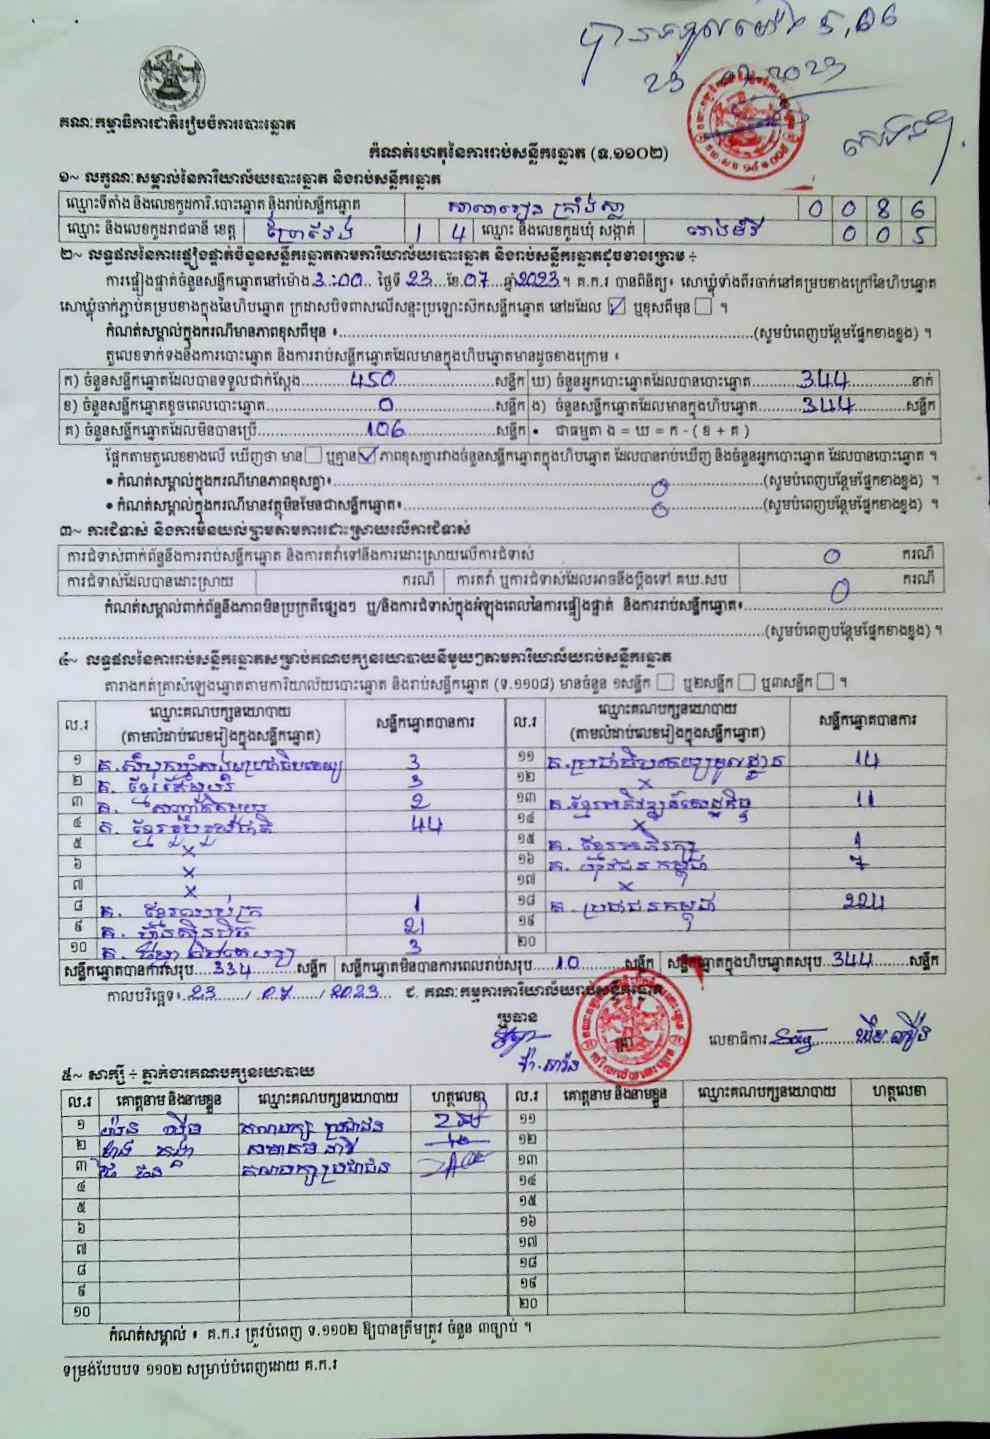 បានទទួលម៉ោង 5,06
23 07 2023
គណៈកម្មាធិការជាតិរៀបចំការបោះឆ្នោត
កំណត់ហេតុនៃការរាប់សន្លឹកឆ្នោត (ទ.១១០២)
១~ លក្ខណៈសម្គាល់នៃការិយាល័យបោះឆ្នោត និងរាប់សន្លឹកឆ្នោត
ឈ្មោះទីតាំង និងលេខកូដការិ.បោះឆ្នោត និងរាប់សន្លឹកឆ្នោត សាលារៀន 0 0 8 6
ឈ្មោះ និងលេខកូដរាជធានី ខេត្ត ព្រៃវែង 1 4 ឈ្មោះ និងលេខកូដឃុំ សង្កាត់ 0 0 5
២~ លទ្ធផលនៃការផ្ទៀងផ្ទាត់ចំនួនសន្លឹកឆ្នោតតាមការិយាល័យបោះឆ្នោត និងរាប់សន្លឹកឆ្នោតដូចខាងក្រោម ÷
ការផ្ទៀងផ្ទាត់ចំនួនសន្លឹកឆ្នោតនៅម៉ោង 3:00 ថ្ងៃទី 23 ខែ 07 ឆ្នាំ 2023 ។ គ.ក.រ បានពិនិត្យ៖ សោឃ្លុំទាំងពីរចាក់នៅគម្របខាងក្រៅនៃហិបឆ្នោត
សោឃ្លុំចាក់ភ្ជាប់គម្របខាងក្នុងនៃហិបឆ្នោត ក្រដាសបិទពាសលើសន្ទះប្រឡោះសិកសន្លឹកឆ្នោត នៅដដែល ☑ ឬខុសពីមុន ☐ ។
កំណត់សម្គាល់ក្នុងករណីមានភាពខុសពីមុន ៖ (សូមបំពេញបន្ថែមផ្នែកខាងខ្នង) ។
តួលេខទាក់ទងនឹងការបោះឆ្នោត និងការរាប់សន្លឹកឆ្នោតដែលមានក្នុងហិបឆ្នោតមានដូចខាងក្រោម ៖
ក) ចំនួនសន្លឹកឆ្នោតដែលបានទទួលជាក់ស្តែង 450 សន្លឹក ឃ) ចំនួនអ្នកបោះឆ្នោតដែលបានបោះឆ្នោត 344 នាក់
ខ) ចំនួនសន្លឹកឆ្នោតខូចពេលបោះឆ្នោត 0 សន្លឹក ង) ចំនួនសន្លឹកឆ្នោតដែលមានក្នុងហិបឆ្នោត 344 សន្លឹក
គ) ចំនួនសន្លឹកឆ្នោតដែលមិនបានប្រើ 106 សន្លឹក • ជាធម្មតា ង = ឃ = ក - ( ខ + គ )
ផ្អែកតាមតួលេខខាងលើ ឃើញថា មាន ☐ ឬគ្មាន ☑ ភាពខុសគ្នារវាងចំនួនសន្លឹកឆ្នោតក្នុងហិបឆ្នោត ដែលបានរាប់ឃើញ និងចំនួនអ្នកបោះឆ្នោត ដែលបានបោះឆ្នោត ។
• កំណត់សម្គាល់ក្នុងករណីមានភាពខុសគ្នា៖ 0 (សូមបំពេញបន្ថែមផ្នែកខាងខ្នង) ។
• កំណត់សម្គាល់ក្នុងករណីមានវត្ថុមិនមែនជាសន្លឹកឆ្នោត៖ 0 (សូមបំពេញបន្ថែមផ្នែកខាងខ្នង) ។
៣~ ការជំទាស់ និងការមិនយល់ព្រមតាមការដោះស្រាយលើការជំទាស់
ការជំទាស់ពាក់ព័ន្ធនឹងការរាប់សន្លឹកឆ្នោត និងការតវ៉ាទៅនឹងការដោះស្រាយលើការជំទាស់ 0 ករណី
ការជំទាស់ដែលបានដោះស្រាយ ករណី ការតវ៉ា ឬការជំទាស់ដែលអាចនឹងប្តឹងទៅ គឃ.សប 0 ករណី
កំណត់សម្គាល់ពាក់ព័ន្ធនឹងភាពមិនប្រក្រតីផ្សេងៗ ឬ/និងការជំទាស់ក្នុងអំឡុងពេលនៃការផ្ទៀងផ្ទាត់ និងការរាប់សន្លឹកឆ្នោត៖
(សូមបំពេញបន្ថែមផ្នែកខាងខ្នង) ។
៤~ លទ្ធផលនៃការរាប់សន្លឹកឆ្នោតសម្រាប់គណបក្សនយោបាយនីមួយៗតាមការិយាល័យរាប់សន្លឹកឆ្នោត
តារាងកត់គ្រាសំឡេងឆ្នោតតាមការិយាល័យបោះឆ្នោត និងរាប់សន្លឹកឆ្នោត (ទ.១១០៨) មានចំនួន ១សន្លឹក ☐ ឬ២សន្លឹក ☐ ឬ៣សន្លឹក ☐ ។
ល.រ ឈ្មោះគណបក្សនយោបាយ (តាមលំដាប់លេខរៀងក្នុងសន្លឹកឆ្នោត) សន្លឹកឆ្នោតបានការ ល.រ ឈ្មោះគណបក្សនយោបាយ (តាមលំដាប់លេខរៀងក្នុងសន្លឹកឆ្នោត) សន្លឹកឆ្នោតបានការ
១ គ.សំបុកឃ្មុំសង្គមប្រជាធិបតេយ្យ 3 ១១ គ.ប្រជាធិបតេយ្យមូលដ្ឋាន 14
២ គ. ខ្មែរតែមួយ 3 ១២ x
៣ គ. 2 ១៣ គ.ខ្មែរអភិវឌ្ឍន៍សេដ្ឋកិច្ច 11
៤ គ. ខ្មែររួបរួមជាតិ 44 ១៤ x
៥ x ១៥ គ. ខ្មែរអភិរក្ស 1
៦ x ១៦ គ. យុវជនកម្ពុជា 7
៧ x ១៧ x
៨ គ. ខ្មែរឈប់ក្រ 1 ១៨ គ. ប្រជាជនកម្ពុជា 224
៩ គ. ហ៊្វុនស៊ិនប៉ិច 21 ១៩
១០ គ. 3 ២០
សន្លឹកឆ្នោតបានការសរុប 334 សន្លឹក សន្លឹកឆ្នោតមិនបានការពេលរាប់សរុប 10 សន្លឹក សន្លឹកឆ្នោតក្នុងហិបឆ្នោតសរុប 344 សន្លឹក
កាលបរិច្ឆេទ៖ 23 / 07 / 2023 ជ. គណៈកម្មការការិយាល័យរាប់សន្លឹកឆ្នោត
ប្រធាន
លេខាធិការ
៥~ សាក្សី ÷ ភ្នាក់ងារគណបក្សនយោបាយ
ល.រ គោត្តនាម និងនាមខ្លួន ឈ្មោះគណបក្សនយោបាយ ហត្ថលេខា ល.រ គោត្តនាម និងនាមខ្លួន ឈ្មោះគណបក្សនយោបាយ ហត្ថលេខា
១ គណបក្ស ប្រជាជន ១១
២ សមាគម នារី ១២
៣ គណបក្សប្រជាជន ១៣
៤ ១៤
៥ ១៥
៦ ១៦
៧ ១៧
៨ ១៨
៩ ១៩
១០ ២០
កំណត់សម្គាល់ ៖ គ.ក.រ ត្រូវបំពេញ ទ.១១០២ ឱ្យបានត្រឹមត្រូវ ចំនួន ៣ច្បាប់ ។
ទម្រង់បែបបទ ១១០២ សម្រាប់បំពេញដោយ គ.ក.រ